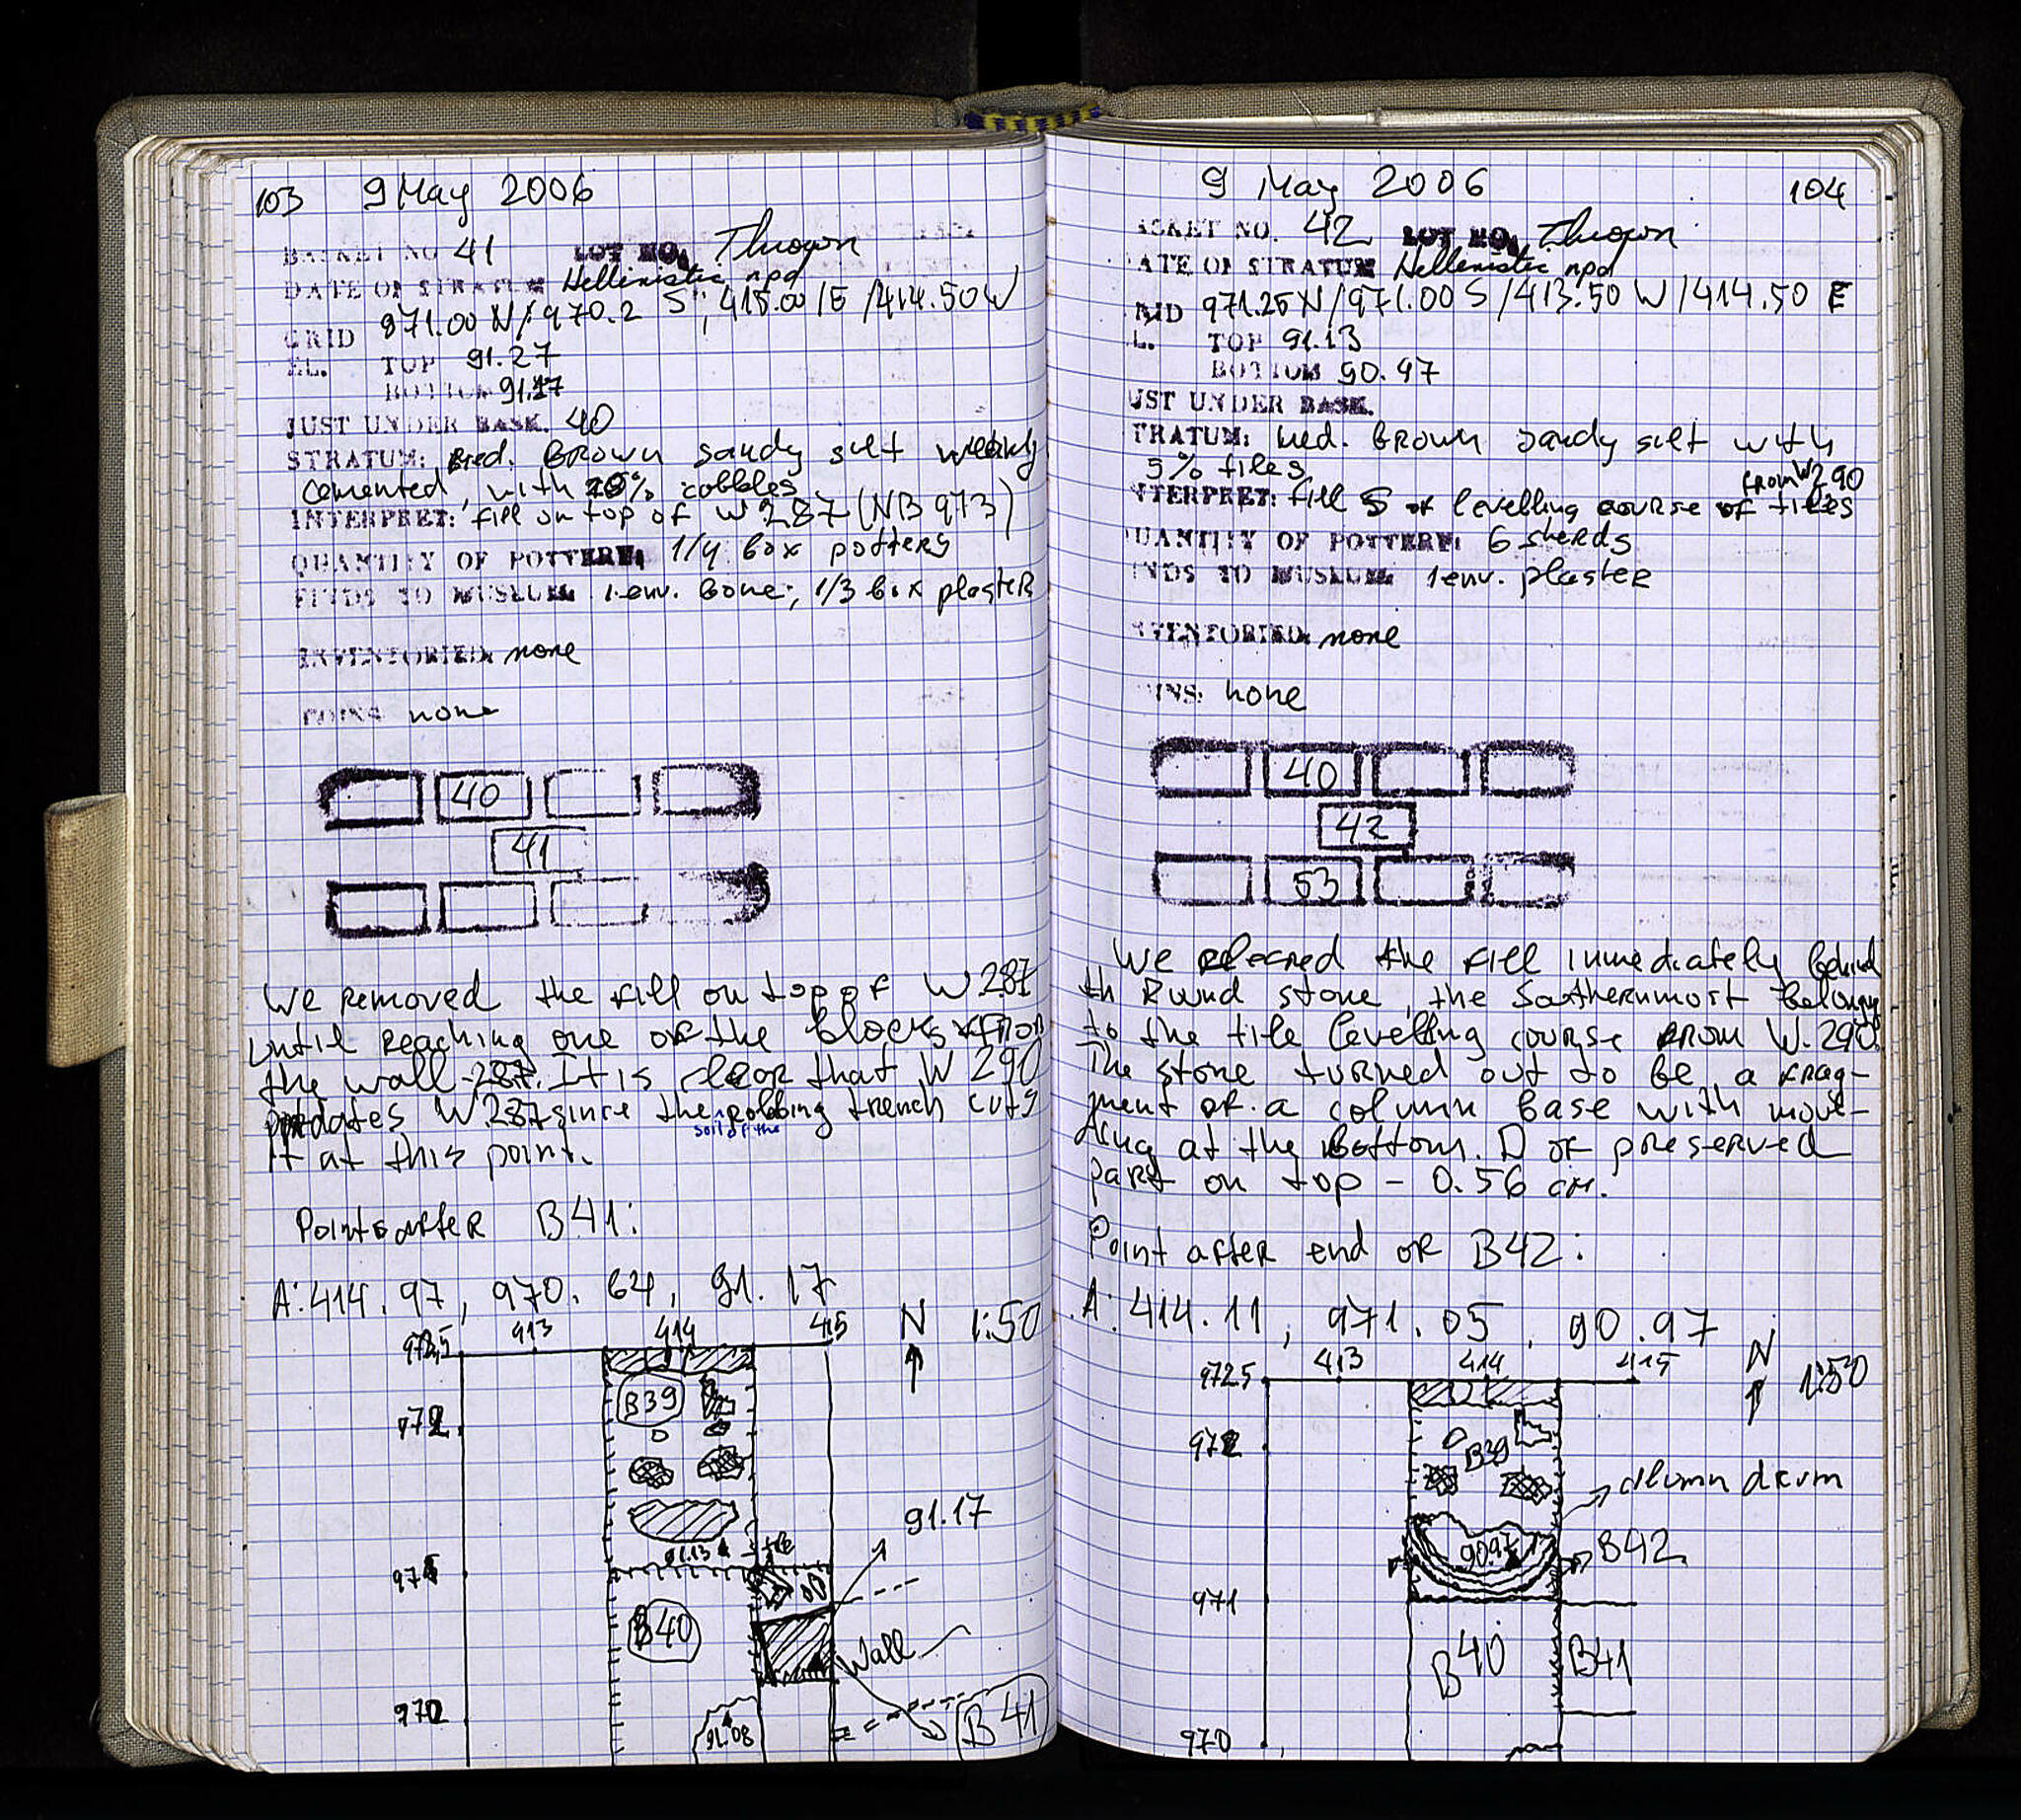 103 9 May 2006
BASKET NO 41 LOT NO. Thrown
DATE OF STRATUM Hellenistic npd
GRID 971.00 N/970.2 S; 415.00/E/414.50W
EL. TOP 91.27
BOTTOM 91.17
JUST UNDER BASK. 40
STRATUM: Med. Brown sandy silt weakly
cemented, with 20% cobbles
INTERPRET: fill on top of W287 (NB 973)
QUANTITY OF POTTERY: 1/4 box pottery
FINDS TO MUSEUM: 1 env. bone; 1/3 box plaster
INVENTORIED: none
COINS none
40
41
We removed the fill on top of W287
until reaching one of the blocks from
the wall 287. It is clear that W290
W.287 since the soil of the robbing trench cuts
it at this point.
Points after B41:
A: 414.97, 970.64, 91.17
972,5 413 414 415 N 1:50
B39
972
91.17
91.13 tile
971
B40
Wall
970
91.08
B41
9 May 2006 104
ASKET NO. 42 LOT NO. Thrown
ATE OF STRATUM Hellenistic npd
RID 971.25 N/971.00 S/413.50 W/414.50 E
L. TOP 91.13
BOTTOM 90.97
UST UNDER BASK.
TRATUM: Med. Brown sandy silt with
5% tiles
NTERPRET: fill S of levelling course of tiles from W290
UANTITY OF POTTERY: 6 sherds
INDS TO MUSEUM: 1 env. plaster
VENTORIED: none
INS: none
40
42
53
We cleaned the fill immediately behind
th Round stone, the Southernmost belongg
to the tile levelling course from W.290.
The stone turned out to be a frag-
ment of a column base with moul-
ding at the bottom. D of preserved
part on top - 0.56 cm.
Point after end of B42:
A: 414.11, 971.05, 90.97
972.5 413 414 415 N 1:50
972
B39
column drum
90.97
B42
971
B40
B41
970